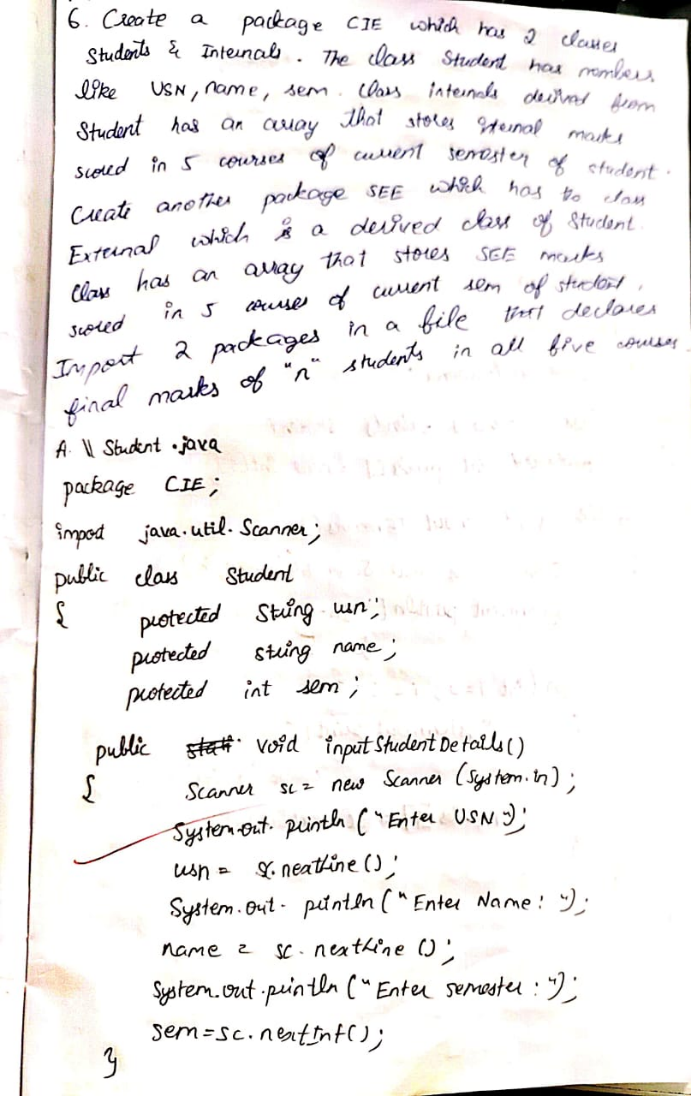 6. Create a package CIE which has 2 classes
Students & Internals. The class Student has members
like USN, name, sem. Class internals derived from
Student has an array that stores internal marks
scored in 5 courses of current semester of student.
Create another package SEE which has to class
External which is a derived class of Student.
Class has an array that stores SEE marks
scored in 5 courses of current sem of student.
Import 2 packages in a file that declares
final marks of "n" students in all five courses.
A. \\ Student.java
package CIE;
import java.util.Scanner;
public class Student
{ protected String usn;
protected string name;
protected int sem;
public void inputStudentDetails()
{ Scanner sc = new Scanner (System.in);
System.out.println ("Enter USN");
usn = sc.nextLine ();
System.out.println ("Enter Name: ");
name = sc.nextLine ();
System.out.println ("Enter semester: ");
sem = sc.nextInt();
}